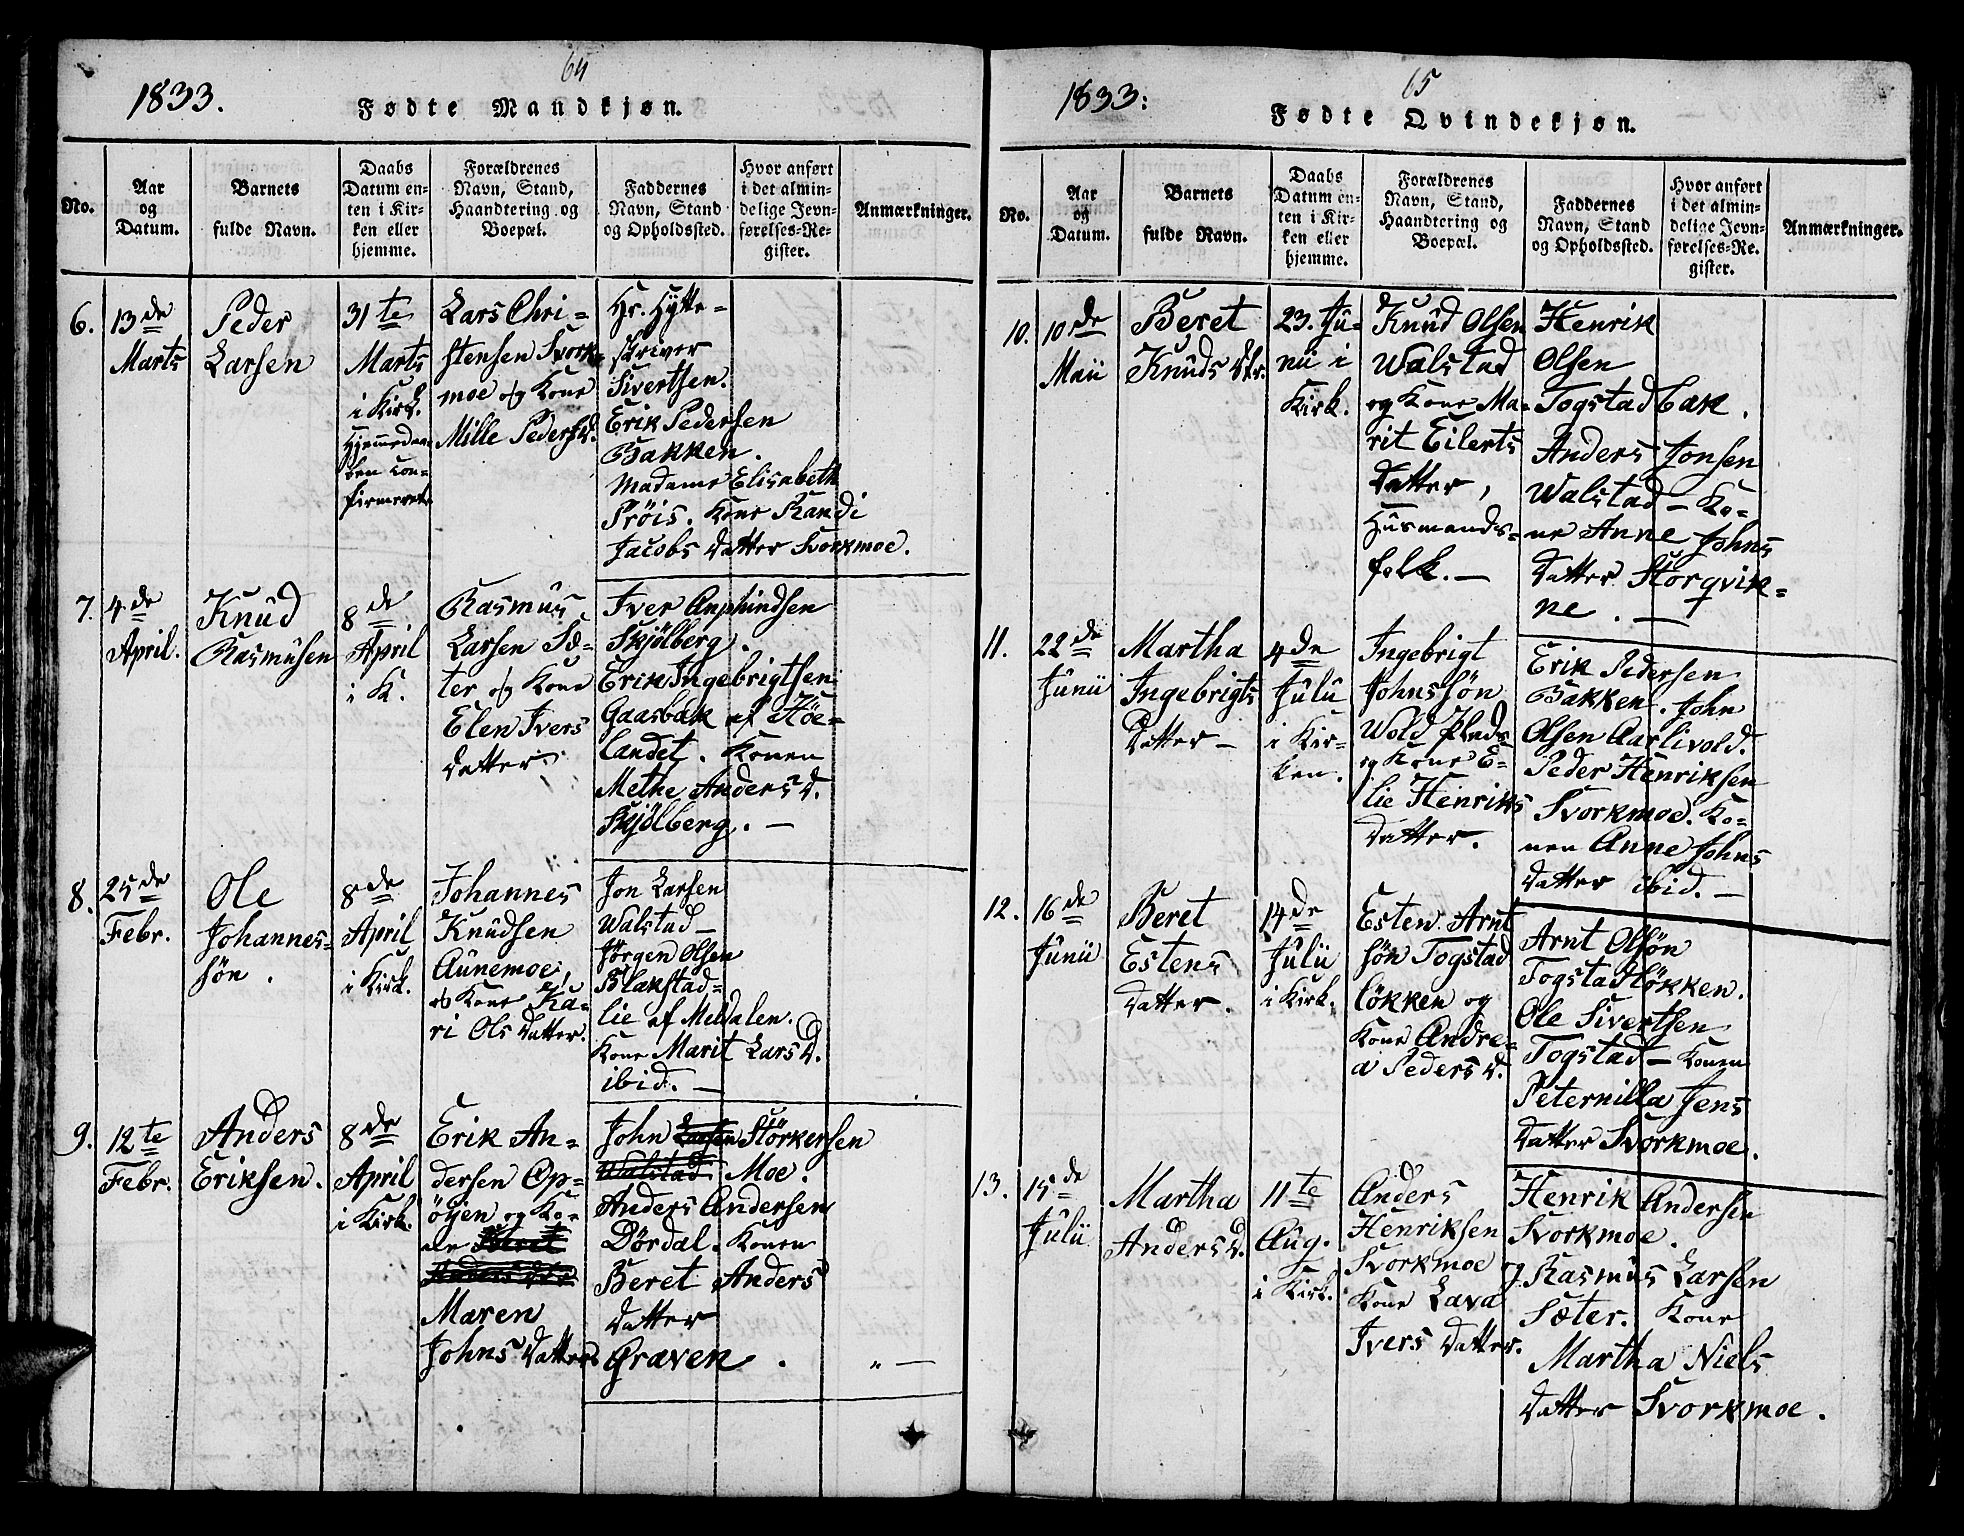 64
1833.
Fødte Mandkjøn.
No.
Aar
og
Datum.
Barnets
fulde Navn.
Daabs
Datum en-
ten i Kir-
ken eller
hjemme.
Forældrenes
Navn, Stand,
Haandtering og
Boepæl.
Faddernes
Navn, Stand
og Opholdssted.
Hvor anført
i det almin-
delige Jevn-
førelses-Re-
gister.
Anmærkninger.
6.
13de
Marts
Peder
Larsen
31te
Marts
i Kirk.
Hjemmedaa-
ben con-
firmeret
Lars Chri-
stensen Svork-
moe og Kone
Mille Peders D.
Hr. Hytte-
skriver
Sivertsen.
Erik Pedersen
Bakken.
Madame Elisabeth
Pröis. Kone Randi
Jacobs Datter Svorkmoe.
7.
4de
April.
Knud
Rasmusen
8de
April
i K.
Rasmus
Larsen Sæ-
ter og Kone
Elen Ivers
Datter
Iver Amphindsen
Skjölberg.
Erik Ingebrigtsen
Gaasbak af Höe-
landet. Konen
Methe Anders D.
Skjölberg. —
8.
25de
Febr.
Ole
Johannes-
sön.
8de
April
i Kirk.
Johannes
Knudsen
Aunemoe,
og Kone Ka-
ri Ols Datter.
Jon Larsen
Walstad —
Jörgen Olsen
Blakstad-
lie af Meldalen.
Kone Marit Lars D.
ibid. —
9.
12te
Febr.
Anders
Eriksen.
8de
April
i Kirk.
Erik An-
dersen Op-
öijen og Ko-
ne Beret
Anders Dtr
Maren
Johns Datter
John Larsen Störkersen
Walstad Moe.
Anders Andersen
Dördal. Konen
Beret Anders
Datter
Græven. „ —
65
1833:
Fødte Qvindekjøn.
No.
Aar
og
Datum.
Barnets
fulde Navn.
Daabs
Datum en-
ten i Kir-
ken eller
hjemme.
Forældrenes
Navn, Stand,
Haandtering og
Boepæl.
Faddernes
Navn, Stand
og Opholdssted.
Hvor anført
i det almin-
delige Jevn-
førelses-Re-
gister.
Anmærkninger.
10.
10de
Maii
Beret
Knuds Dtr.
23. Ju-
nii i
Kirk.
Knud Olsen
Walstad
og Kone Ma-
rit Eilerts
Datter,
Husmands-
folk. —
Henrik
Olsen
Togstadbak.
Anders Jonsen
Walstad — Ko-
ne Anne Johns
Datter Storqvik-
ne. —
11.
22de
Junii
Martha
Ingebrigts
Datter —
4de
Julii
i Kir-
ken.
Ingebrigt
Johnssön
Wold Plads
og Kone E-
lie Henriks
Datter.
Erik Pedersen
Bakken. John
Olsen Aarlivold.
Peder Henriksen
Svorkmoe. Ko-
nen Anne Johns
Datter ibid. —
12.
16de
Junii
Beret
Estens
Datter.
14de
Julii
i Kirk.
Esten Arnt
sön Togstad
lökken og
Kone Andre-
a Peders D.
Arnt Olsön
Togstadlökken.
Ole Sivertsen
Togstad — Konen
Peternilla Jens
Datter Svorkmoe.
13.
15de
Julii
Martha
Anders D.
11te
Aug.
i Kirk.
Anders
Henriksen
Svorkmoe og
Kone Lava
Ivers Datter.
Henrik Andersen
Svorkmoe.
Rasmus Larsen
Sæter. Kone
Martha Niels
Datter Svorkmoe.